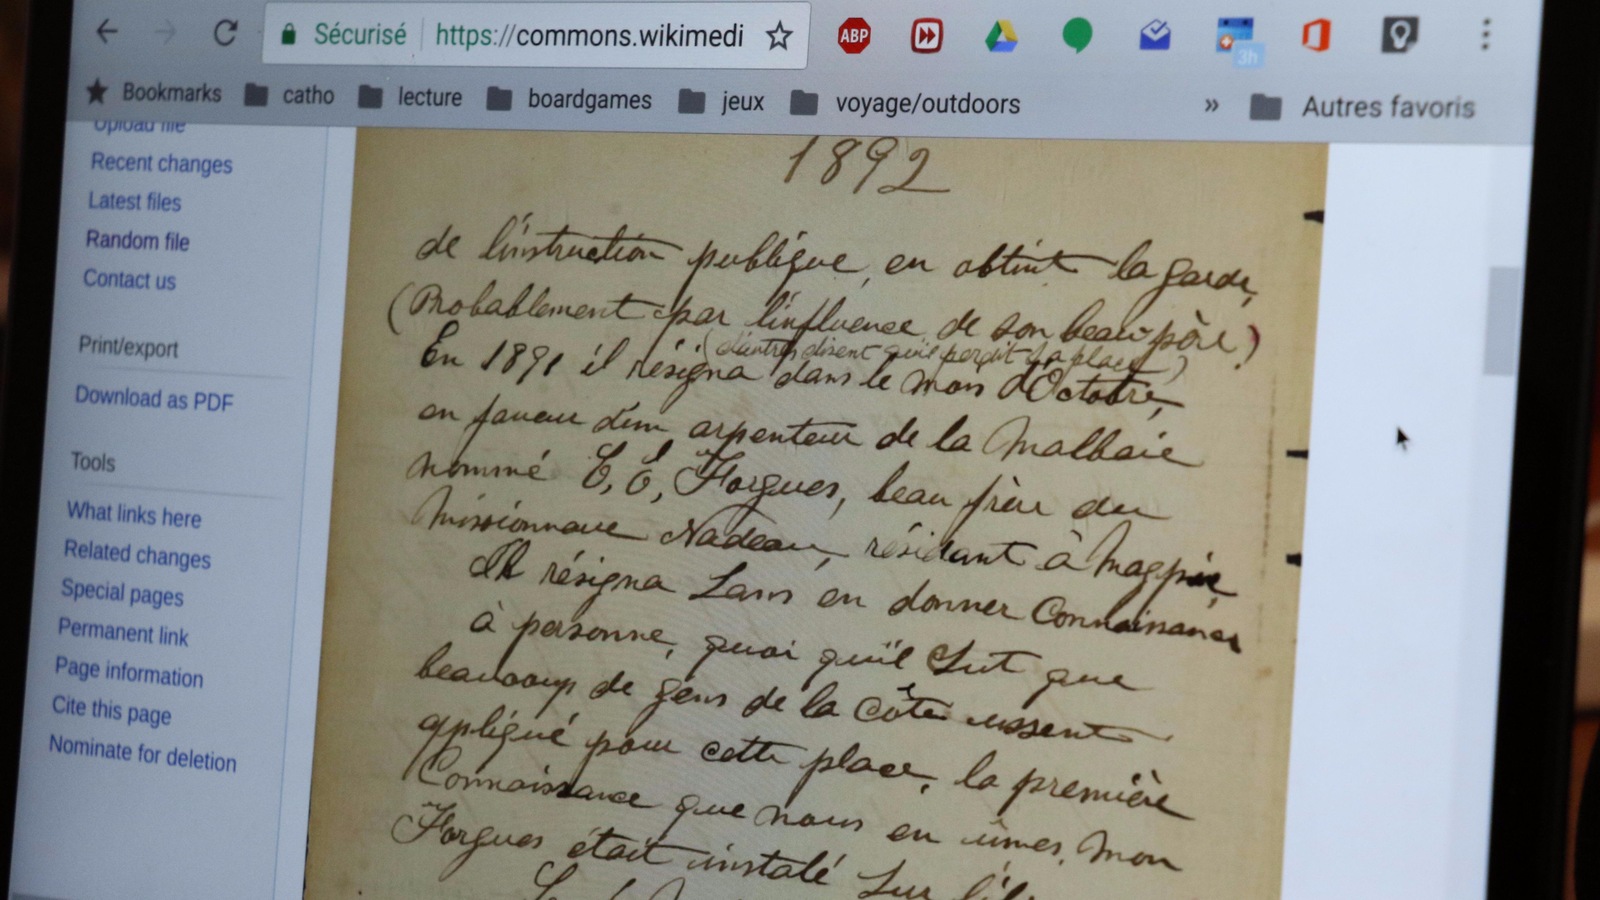 Sécurisé https://commons.wikimedi ABP 3h
Bookmarks catho lecture boardgames jeux voyage/outdoors » Autres favoris
Upload file
Recent changes
Latest files
Random file
Contact us
Print/export
Download as PDF
Tools
What links here
Related changes
Special pages
Permanent link
Page information
Cite this page
Nominate for deletion
1892
de l'instruction publique, en obtint la garde,
(Probablement par l'influence de son beau père)
(d'autres disent qu'il perdit sa place)
En 1891 il résigna dans le mois d'Octobre,
en faveur d'un arpenteur de la Malbaie
nommé E, E, Forgues, beau frère du
Missionnaire Nadeau, résidant à Magpie,
Il résigna sans en donner connaissance
à personne, quoi qu'il sut que
beaucoup de gens de la côte eussent
appliqué pour cette place, la première
connaissance que nous en eûmes, Mon
Forgues était instalé sur l'île